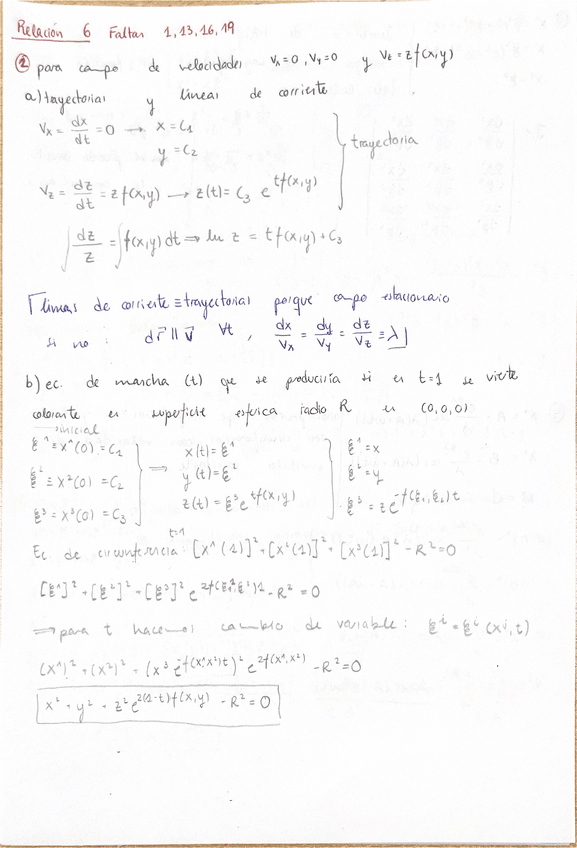 Relación 6 Faltan 1,13,16,19
② para campo de velocidades Vx=0, Vy=0 y Vz=z f(x,y)
a) trayectorias y líneas de corriente
Vx = dx/dt = 0 → x = C1
y = C2
Vz = dz/dt = z f(x,y) → z(t) = C3 e^{t f(x,y)}
trayectoria
∫ dz/z = ∫ f(x,y) dt ⇒ ln z = t f(x,y) + C3
⌈ líneas de corriente ≡ trayectorias porque campo estacionario
si no : dr⃗ ∥ v⃗ ∀t , dx/Vx = dy/Vy = dz/Vz ≡ λ ⌋
b) ec. de mancha (t) que se produciría si en t=1 se vierte
colorante en superficie esférica radio R en (0,0,0)
→ inicial
ξ¹ ≡ x¹(0) = C1
ξ² ≡ x²(0) = C2
ξ³ = x³(0) = C3
⇒ x(t) = ξ¹
y(t) = ξ²
z(t) = ξ³ e^{t f(x,y)}
ξ¹ = x
ξ² = y
ξ³ = z e^{-f(ξ1,ξ2) t}
Ec de circunferencia: t=1 [x¹(1)]² + [x²(1)]² + [x³(1)]² - R² = 0
[ξ¹]² + [ξ²]² + [ξ³]² e^{2f(ξ¹,ξ²)1} - R² = 0
⇒ para t hacemos cambio de variable: ξ^i = ξ^i (x^j, t)
(x¹)² + (x²)² + (x³ e^{-f(x¹x²)t})² e^{2f(x¹,x²)} - R² = 0
x² + y² + z² e^{2(1-t) f(x,y)} - R² = 0